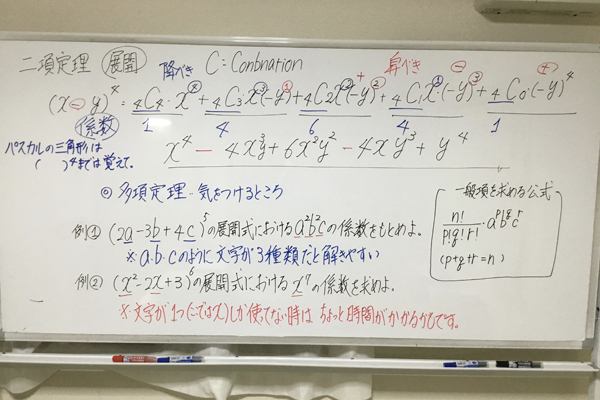 二項定理 展開 降べき C:Conbnation 昇べき
(x-y)⁴=₄C₄・x⁴+₄C₃x³(-y)¹+₄C₂x²(-y)²+₄C₁x¹(-y)³+₄C₀・(-y)⁴
係数 1 4 6 4 1
パスカルの三角形は
( )⁴までは覚えて。
x⁴-4x³y+6x²y²-4xy³+y⁴
◎多項定理-気をつけるところ
例①(2a-3b+4c)⁵の展開式におけるa²b²cの係数をもとめよ。
※a.b.cのように文字が3種類だと解きやすい
例②(x²-2x+3)⁶の展開式におけるx⁷の係数を求めよ。
※文字が1つ(ここではx)しか使ってない時は ちょっと時間がかかるかもです。
一般項を求める公式
n!/p!q!r!・aᵖb𐞥cʳ
(p+q+r=n)